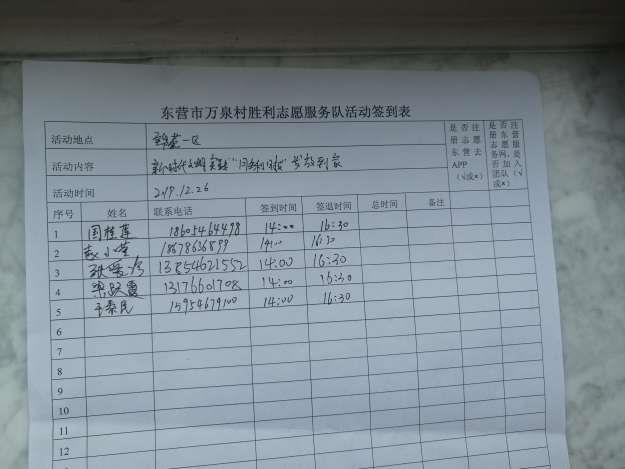 东营市万泉村胜利志愿服务队活动签到表
活动地点 一区
是否注册志愿东营去APP（√或×）
是否注册东营志愿服务网，是否加入团队（√或×）
活动内容 新时代文明实践
活动时间 2019.12.26
序号 姓名 联系电话 签到时间 签退时间 总时间 备注
1 国桂莲 18605464498 14:00 16:30
2 赵小 18678636899 14:00 16:30
3 13854621552 14:00 16:30
4 梁跃霞 13176601708 14:00 16:30
5 15954679100 14:00 16:30
6
7
8
9
10
11
12